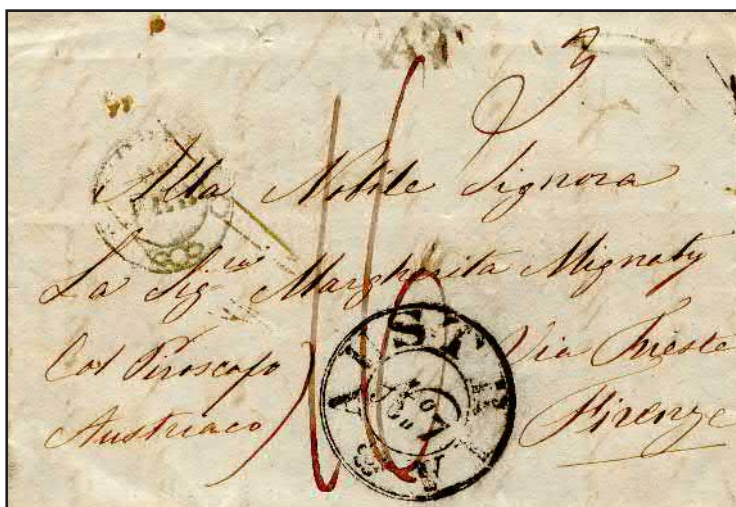 16
Alla Nobile Signora
La Sig.ra Margherita Mignaty
Col Piroscafo Via Trieste
Austriaco) Firenze
AUSTRIA